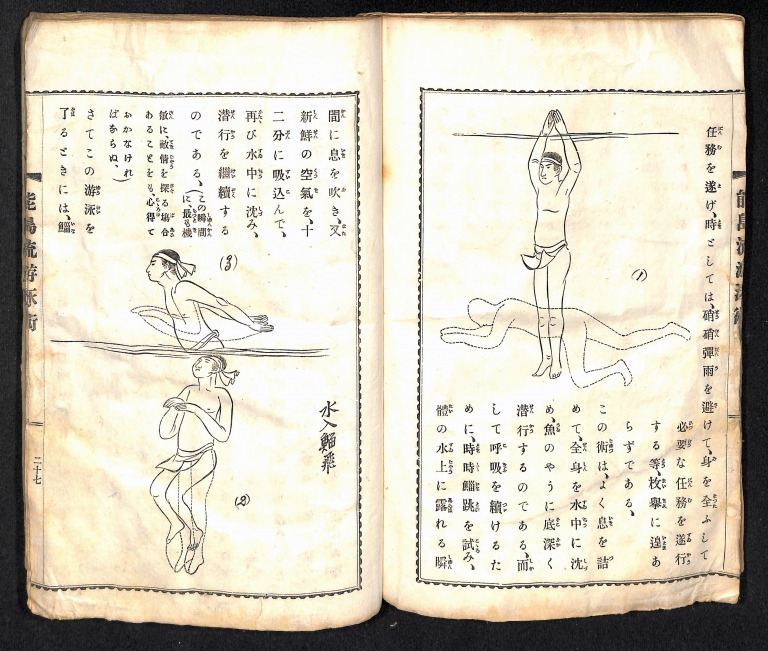 任務を遂げ、時としては、硝硝彈雨を避けて、身を全ふして
必要な任務を遂行
する等、枚舉に遑あ
らずである、
この術は、よく息を詰
めて、全身を水中に沈
め、魚のやうに底深く
潜行するのである、而
して呼吸を續けるた
めに、時時鯔跳を試み、
體の水上に露れる瞬
(1)
間に息を吹き、又
新鮮の空氣を、十
二分に吸込んで、
再び水中に沈み、
潜行を繼續する
のである、(この瞬間
に、最も機
敏に、敵情を探る塲合
あることをも、心得て
おかなければならぬ、)
さてこの游泳を
了るときには、鯔
(3)
(2)
水入鯔飛
能島流游泳術
二十七